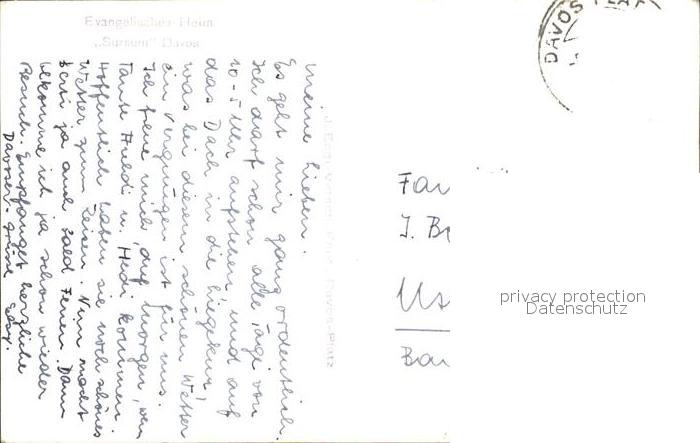 Evangelisches Heim
„Sursum" Davos
Meine Lieben.
Es geht mir ganz ordentlich.
Ich darf schon alle Tage von
10-5 Uhr aufstehen, und auf
das Dach in die Liegekur,
was bei diesem schönen Wetter
ein Vergnügen ist für uns.
Ich freue mich, auf morgen, wenn
Tante Huldi u. Hedi kommen.
Hoffentlich haben sie noch schönes
Wetter zum Reisen. Nun macht
ja auch bald Ferien. Dann
bekomme ich ja schon wieder
Besuch. Empfanget herzliche
Davoser-Grüsse
J. Davos-Platz
DAVOS PLATZ
Fam
J. B
Us
Ba
privacy protection
Datenschutz